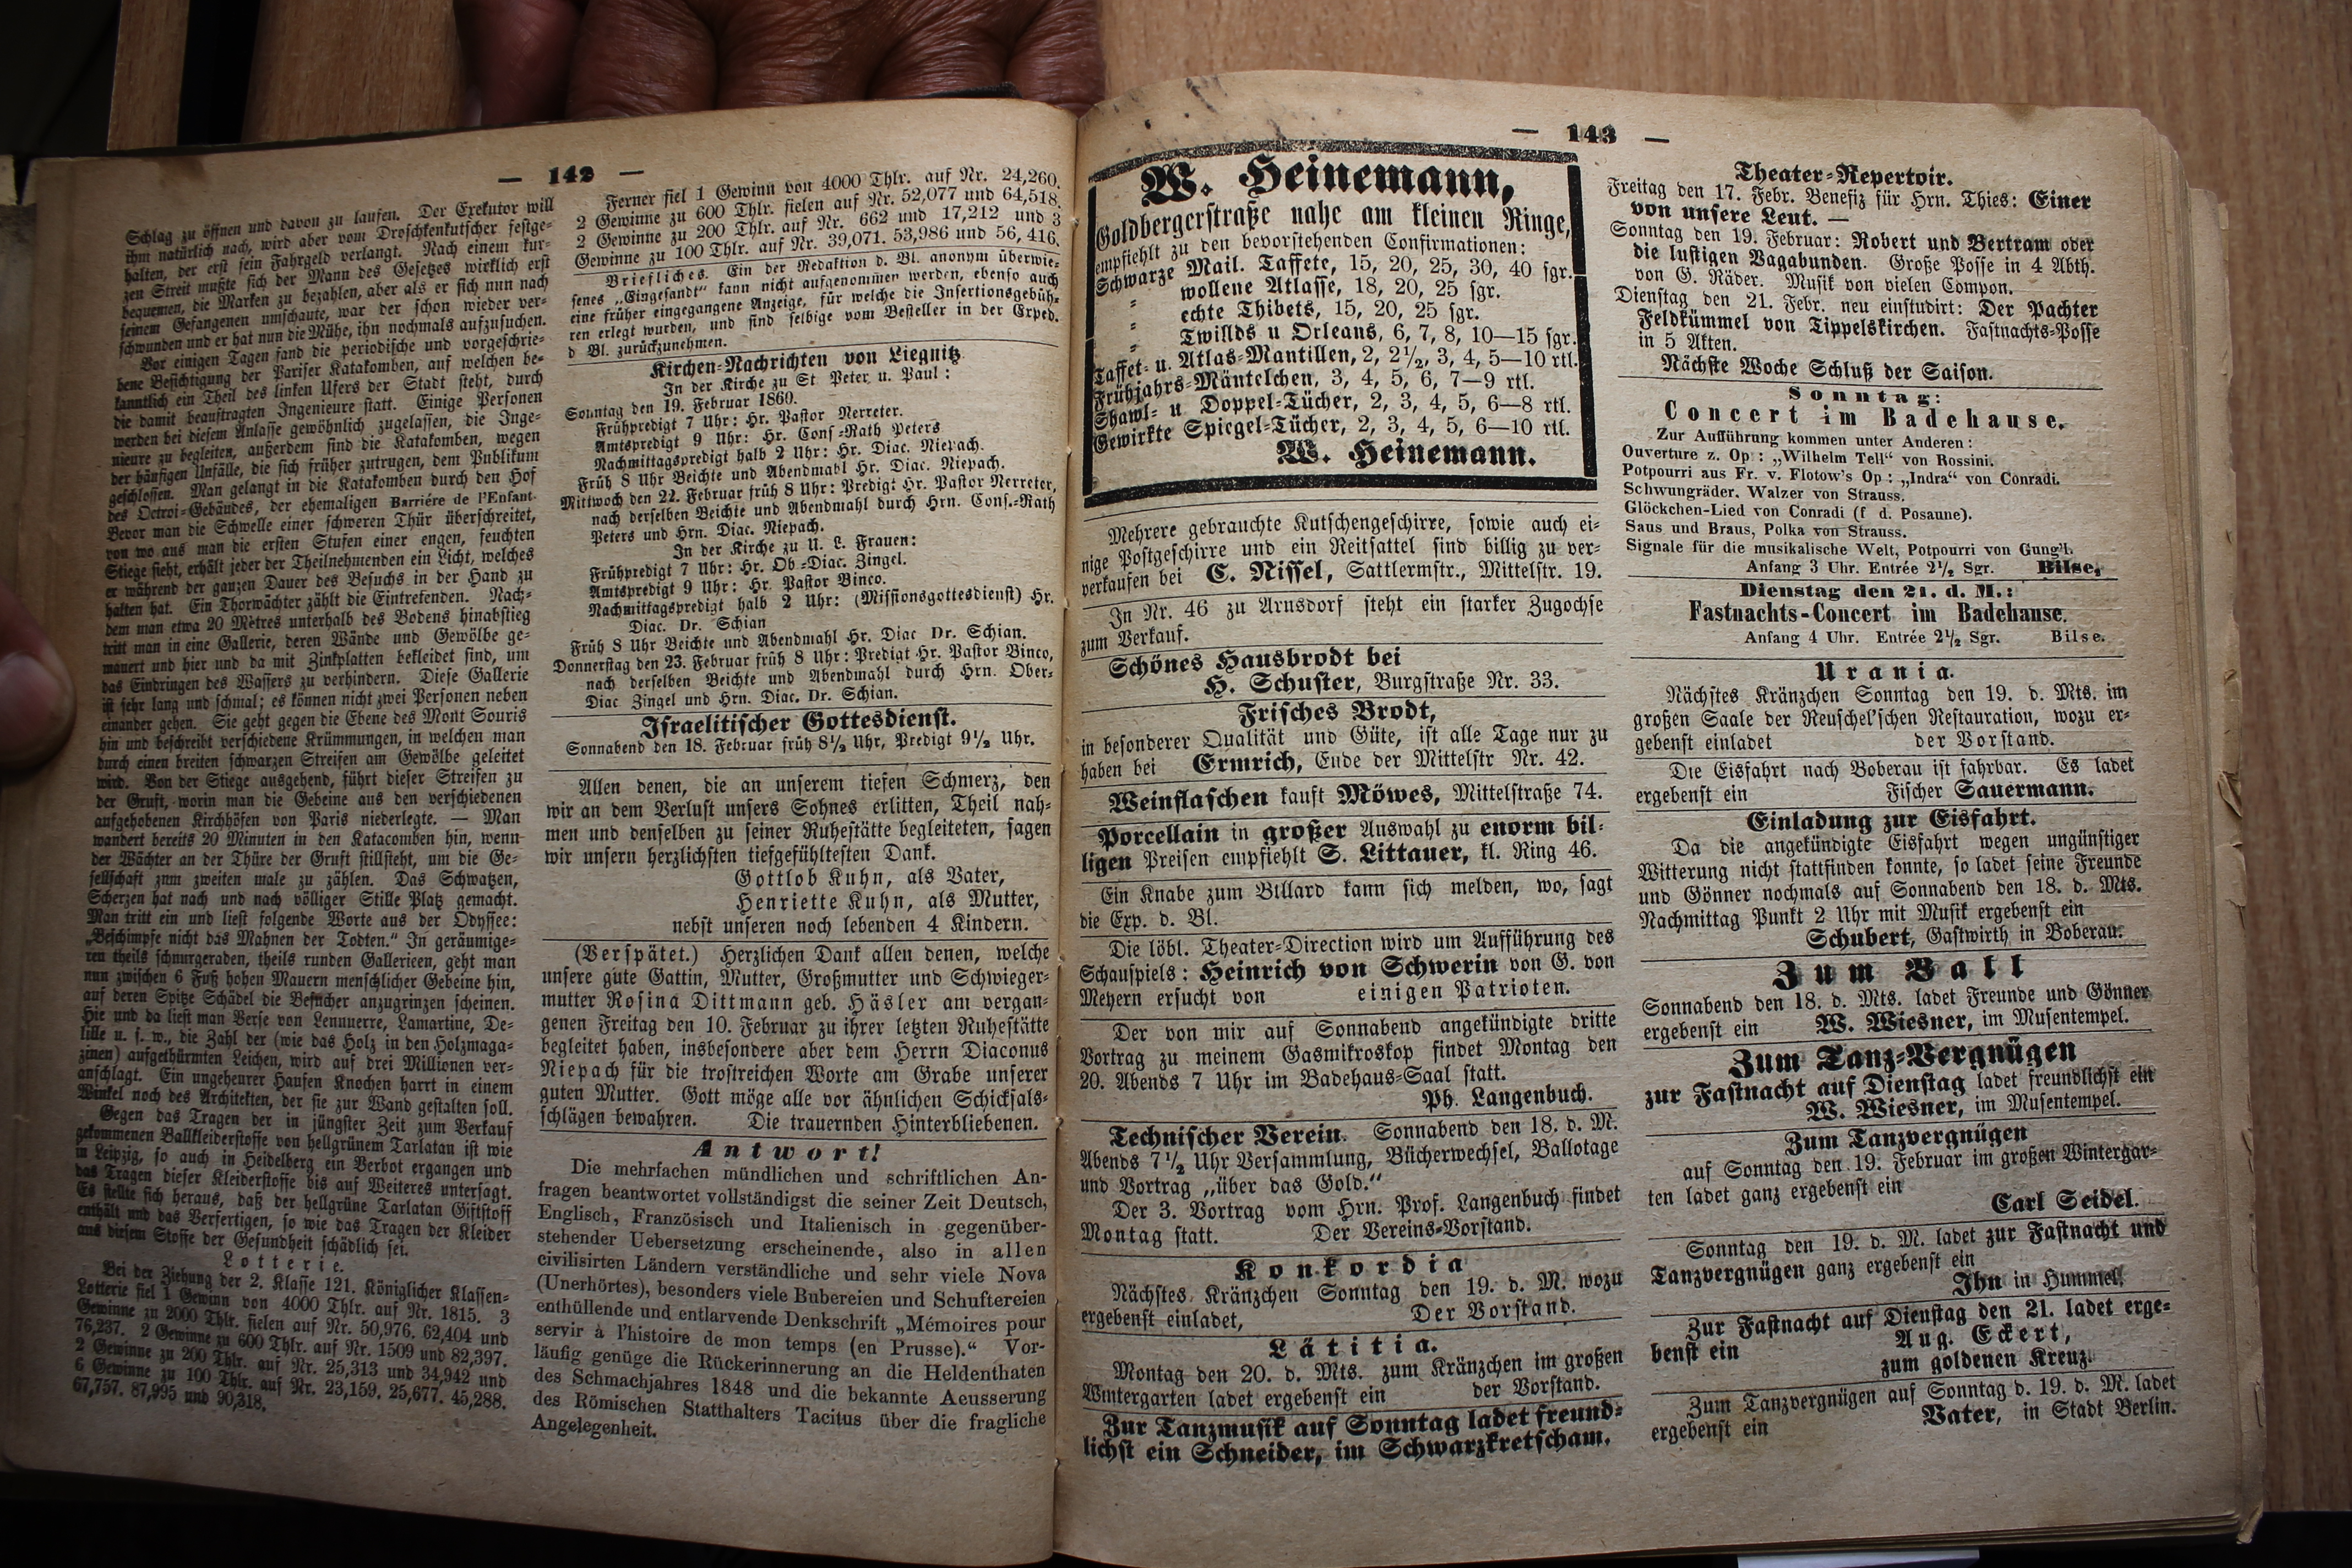 — 142 —
Schlag zu öffnen und davon zu laufen. Der Exekutor will
ihm natürlich nach, wird aber vom Droschkenkutscher festge-
halten, der erst sein Fahrgeld verlangt. Nach einem kur-
zen Streit mußte sich der Mann des Gesetzes wirklich erst
bequemen, die Marken zu bezahlen, aber als er sich nun nach
seinem Gefangenen umschaute, war der schon wieder ver-
schwunden und er hat nun die Mühe, ihn nochmals aufzusuchen.
Vor einigen Tagen fand die periodische und vorgeschrie-
bene Besichtigung der Pariser Katakomben, auf welchen be-
kanntlich ein Theil des linken Ufers der Stadt steht, durch
die damit beauftragten Ingenieure statt. Einige Personen
werden bei diesem Anlasse gewöhnlich zugelassen, die Inge-
nieure zu begleiten, außerdem sind die Katakomben, wegen
der häufigen Unfälle, die sich früher zutrugen, dem Publikum
geschlossen. Man gelangt in die Katakomben durch den Hof
des Octroi-Gebäudes, der ehemaligen Barriére de l'Enfant.
Bevor man die Schwelle einer schweren Thür überschreitet,
von wo aus man die ersten Stufen einer engen, feuchten
Stiege sieht, erhält jeder der Theilnehmenden ein Licht, welches
er während der ganzen Dauer des Besuchs in der Hand zu
halten hat. Ein Thorwächter zählt die Eintretenden. Nach-
dem man etwa 20 Mètres unterhalb des Bodens hinabstieg
tritt man in eine Gallerie, deren Wände und Gewölbe ge-
mauert und hier und da mit Zinkplatten bekleidet sind, um
das Eindringen des Wassers zu verhindern. Diese Gallerie
ist sehr lang und schmal; es können nicht zwei Personen neben
einander gehen. Sie geht gegen die Ebene des Mont Souris
hin und beschreibt verschiedene Krümmungen, in welchen man
durch einen breiten schwarzen Streifen am Gewölbe geleitet
wird. Von der Stiege ausgehend, führt dieser Streifen zu
der Gruft, worin man die Gebeine aus den verschiedenen
aufgehobenen Kirchhöfen von Paris niederlegte. — Man
wandert bereits 20 Minuten in den Katacomben hin, wenn
der Wächter an der Thüre der Gruft stillsteht, um die Ge-
sellschaft zum zweiten male zu zählen. Das Schwatzen,
Scherzen hat nach und nach völliger Stille Platz gemacht.
Man tritt ein und liest folgende Worte aus der Odyssee:
„Beschimpfe nicht das Mahnen der Todten.“ In geräumige-
ren theils schnurgeraden, theils runden Gallerieen, geht man
nun zwischen 6 Fuß hohen Mauern menschlicher Gebeine hin,
auf deren Spitze Schädel die Besucher anzugrinzen scheinen.
Hie und da liest man Verse von Lennuerre, Lamartine, De-
lille u. s. w., die Zahl der (wie das Holz in den Holzmaga-
zinen) aufgethürmten Leichen, wird auf drei Millionen ver-
anschlagt. Ein ungeheurer Haufen Knochen harrt in einem
Winkel noch des Architekten, der sie zur Wand gestalten soll.
Gegen das Tragen der in jüngster Zeit zum Verkauf
gekommenen Ballkleiderstoffe von hellgrünem Tarlatan ist wie
in Leipzig, so auch in Heidelberg ein Verbot ergangen und
das Tragen dieser Kleiderstoffe bis auf Weiteres untersagt.
Es stellte sich heraus, daß der hellgrüne Tarlatan Giftstoff
enthält und das Verfertigen, so wie das Tragen der Kleider
aus diesem Stoffe der Gesundheit schädlich sei.
Lotterie.
Bei der Ziehung der 2. Klasse 121. Königlicher Klassen-
Lotterie fiel 1 Gewinn von 4000 Thlr. auf Nr. 1815. 3
Gewinne zu 2000 Thlr. fielen auf Nr. 50,976. 62,404 und
76,237. 2 Gewinne zu 600 Thlr. auf Nr. 1509 und 82,397.
2 Gewinne zu 200 Thlr. auf Nr. 25,313 und 34,942 und
6 Gewinne zu 100 Thlr. auf Nr. 23,159. 25,677. 45,288.
67,757. 87,995 und 90,318.
Ferner fiel 1 Gewinn von 4000 Thlr. auf Nr. 24,260.
2 Gewinne zu 600 Thlr. fielen auf Nr. 52,077 und 64,518.
2 Gewinne zu 200 Thlr. auf Nr. 662 und 17,212 und 3
Gewinne zu 100 Thlr. auf Nr. 39,071. 53,986 und 56,416.
Briefliches. Ein der Redaktion d. Bl. anonym überwie-
senes „Eingesandt“ kann nicht aufgenommen werden, ebenso auch
eine früher eingegangene Anzeige, für welche die Insertionsgebüh-
ren erlegt wurden, und sind selbige vom Besteller in der Exped.
d Bl. zurückzunehmen.
Kirchen-Nachrichten von Liegnitz
In der Kirche zu St Peter u. Paul:
Sonntag den 19. Februar 1860.
Frühpredigt 7 Uhr: Hr. Pastor Nerreter.
Amtspredigt 9 Uhr: Hr. Cons-Rath Peters
Nachmittagspredigt halb 2 Uhr: Hr. Diac. Niepach.
Früh 8 Uhr Beichte und Abendmahl Hr. Diac. Niepach.
Mittwoch den 22. Februar früh 8 Uhr: Predigt Hr. Pastor Nerreter,
nach derselben Beichte und Abendmahl durch Hrn. Cons.-Rath
Peters und Hrn. Diac. Niepach.
In der Kirche zu U. L. Frauen:
Frühpredigt 7 Uhr: Hr. Ob-Diac. Zingel.
Amtspredigt 9 Uhr: Hr. Pastor Binco.
Nachmittagspredigt halb 2 Uhr: (Missionsgottesdienst) Hr.
Diac. Dr. Schian
Früh 8 Uhr Beichte und Abendmahl Hr. Diac Dr. Schian.
Donnerstag den 23. Februar früh 8 Uhr: Predigt Hr. Pastor Binco,
nach derselben Beichte und Abendmahl durch Hrn. Ober-
Diac Zingel und Hrn. Diac. Dr. Schian.
Israelitischer Gottesdienst.
Sonnabend den 18. Februar früh 8½ Uhr, Predigt 9½ Uhr.
Allen denen, die an unserem tiefen Schmerz, den
wir an dem Verlust unsers Sohnes erlitten, Theil nah-
men und denselben zu seiner Ruhestätte begleiteten, sagen
wir unsern herzlichsten tiefgefühltesten Dank.
Gottlob Kuhn, als Vater,
Henriette Kuhn, als Mutter,
nebst unseren noch lebenden 4 Kindern.
(Verspätet.) Herzlichen Dank allen denen, welche
unsere gute Gattin, Mutter, Großmutter und Schwieger-
mutter Rosina Dittmann geb. Häsler am vergan-
genen Freitag den 10. Februar zu ihrer letzten Ruhestätte
begleitet haben, insbesondere aber dem Herrn Diaconus
Niepach für die trostreichen Worte am Grabe unserer
guten Mutter. Gott möge alle vor ähnlichen Schicksals-
schlägen bewahren. Die trauernden Hinterbliebenen.
Antwort!
Die mehrfachen mündlichen und schriftlichen An-
fragen beantwortet vollständigst die seiner Zeit Deutsch,
Englisch, Französisch und Italienisch in gegenüber-
stehender Uebersetzung erscheinende, also in allen
civilisirten Ländern verständliche und sehr viele Nova
(Unerhörtes), besonders viele Bubereien und Schuftereien
enthüllende und entlarvende Denkschrift „Mémoires pour
servir à l'histoire de mon temps (en Prusse).“ Vor-
läufig genüge die Rückerinnerung an die Heldenthaten
des Schmachjahres 1848 und die bekannte Aeusserung
des Römischen Statthalters Tacitus über die fragliche
Angelegenheit.
— 143 —
W. Heinemann,
Goldbergerstraße nahe am kleinen Ringe,
empfiehlt zu den bevorstehenden Confirmationen:
Schwarze Mail. Taffete, 15, 20, 25, 30, 40 sgr.
" wollene Atlasse, 18, 20, 25 sgr.
" echte Thibets, 15, 20, 25 sgr.
" Twillds u Orleans, 6, 7, 8, 10—15 sgr.
Taffet- u. Atlas-Mantillen, 2, 2½, 3, 4, 5—10 rtl.
Frühjahrs-Mäntelchen, 3, 4, 5, 6, 7—9 rtl.
Shawl- u Doppel-Tücher, 2, 3, 4, 5, 6—8 rtl.
Gewirkte Spiegel-Tücher, 2, 3, 4, 5, 6—10 rtl.
W. Heinemann.
Mehrere gebrauchte Kutschengeschirre, sowie auch ei-
nige Postgeschirre und ein Reitsattel sind billig zu ver-
verkaufen bei C. Nissel, Sattlermstr., Mittelstr. 19.
In Nr. 46 zu Arnsdorf steht ein starker Zugochse
zum Verkauf.
Schönes Hausbrodt bei
H. Schuster, Burgstraße Nr. 33.
Frisches Brodt,
in besonderer Qualität und Güte, ist alle Tage nur zu
haben bei Ermrich, Ende der Mittelstr Nr. 42.
Weinflaschen kauft Möwes, Mittelstraße 74.
Porcellain in großer Auswahl zu enorm bil-
ligen Preisen empfiehlt S. Littauer, kl. Ring 46.
Ein Knabe zum Billard kann sich melden, wo, sagt
die Exp. d. Bl.
Die löbl. Theater-Direction wird um Aufführung des
Schauspiels: Heinrich von Schwerin von G. von
Meyern ersucht von einigen Patrioten.
Der von mir auf Sonnabend angekündigte dritte
Vortrag zu meinem Gasmikroskop findet Montag den
20. Abends 7 Uhr im Badehaus-Saal statt.
Ph. Langenbuch.
Technischer Verein. Sonnabend den 18. d. M.
Abends 7½ Uhr Versammlung, Bücherwechsel, Ballotage
und Vortrag „über das Gold.“
Der 3. Vortrag vom Hrn. Prof. Langenbuch findet
Montag statt. Der Vereins-Vorstand.
Konkordia
Nächstes Kränzchen Sonntag den 19. d. M. wozu
ergebenst einladet, Der Vorstand.
Lätitia.
Montag den 20. d. Mts. zum Kränzchen im großen
Wintergarten ladet ergebenst ein der Vorstand.
Zur Tanzmusik auf Sonntag ladet freund-
lichst ein Schneider, im Schwarzkretscham.
Theater-Repertoir.
Freitag den 17. Febr. Benefiz für Hrn. Thies: Einer
von unsere Leut. —
Sonntag den 19. Februar: Robert und Bertram oder
die lustigen Vagabunden. Große Posse in 4 Abth.
von G. Räder. Musik von vielen Compon.
Dienstag den 21. Febr. neu einstudirt: Der Pachter
Feldkümmel von Tippelskirchen. Fastnachts-Posse
in 5 Akten.
Nächste Woche Schluß der Saison.
Sonntag:
Concert im Badehause.
Zur Aufführung kommen unter Anderen:
Ouverture z. Op: „Wilhelm Tell“ von Rossini.
Potpourri aus Fr. v. Flotow's Op: „Indra“ von Conradi.
Schwungräder. Walzer von Strauss.
Glöckchen-Lied von Conradi (f d. Posaune).
Saus und Braus, Polka von Strauss.
Signale für die musikalische Welt, Potpourri von Gung'l.
Anfang 3 Uhr. Entrée 2½ Sgr. Bilse.
Dienstag den 21. d. M.:
Fastnachts-Concert im Badehause.
Anfang 4 Uhr. Entrée 2½ Sgr. Bilse.
Urania.
Nächstes Kränzchen Sonntag den 19. d. Mts. im
großen Saale der Reuschel'schen Restauration, wozu er-
gebenst einladet der Vorstand.
Die Eisfahrt nach Boberau ist fahrbar. Es ladet
ergebenst ein Fischer Sauermann.
Einladung zur Eisfahrt.
Da die angekündigte Eisfahrt wegen ungünstiger
Witterung nicht stattfinden konnte, so ladet seine Freunde
und Gönner nochmals auf Sonnabend den 18. d. Mts.
Nachmittag Punkt 2 Uhr mit Musik ergebenst ein
Schubert, Gastwirth in Boberau.
Zum Ball
Sonnabend den 18. d. Mts. ladet Freunde und Gönner
ergebenst ein W. Wiesner, im Musentempel.
Zum Tanz-Vergnügen
zur Fastnacht auf Dienstag ladet freundlichst ein
W. Wiesner, im Musentempel.
Zum Tanzvergnügen
auf Sonntag den 19. Februar im großen Wintergar-
ten ladet ganz ergebenst ein
Carl Seidel.
Sonntag den 19. d. M. ladet zur Fastnacht und
Tanzvergnügen ganz ergebenst ein
Ihn in Hummel.
Zur Fastnacht auf Dienstag den 21. ladet erge-
benst ein Aug. Eckert,
zum goldenen Kreuz.
Zum Tanzvergnügen auf Sonntag d. 19. d. M. ladet
ergebenst ein Vater, in Stadt Berlin.